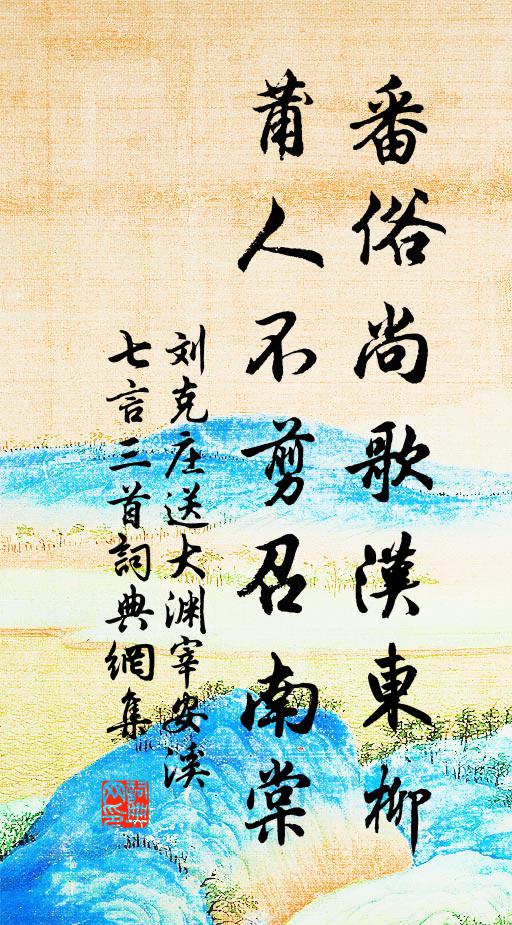 番俗尚歌漢東柳
莆人不剪召南棠
刘克庄送大渊宰安溪
七言三首詞典網集